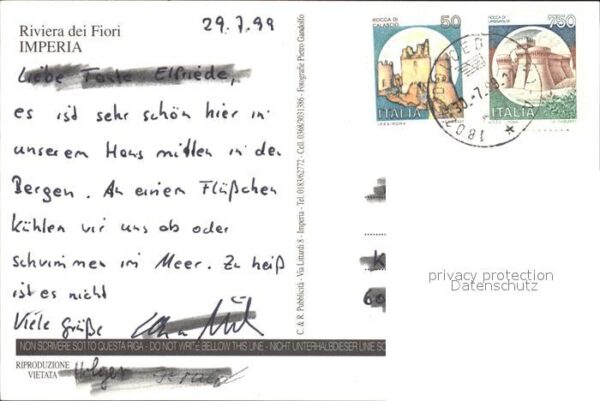 Riviera dei Fiori
IMPERIA
29.7.99
Liebe Tante Elfriede,
es ist sehr schön hier in
unserem Haus mitten in den
Bergen. An einem Flüßchen
kühlen wir uns ab oder
schwimmen im Meer. Zu heiß
ist es nicht
Viele Grüße
NON SCRIVERE SOTTO QUESTA RIGA - DO NOT WRITE BELLOW THIS LINE - NICHT UNTERHALB DIESER LINIE SC
RIPRODUZIONE
VIETATA
Holger
C. & R. Pubblicità - Via Littardi 8 - Imperia - Tel. 0183/62772 - Cell. 0368/3031386 - Fotografie Pietro Gandolfo
ROCCA DI
CALASCIO
50
ITALIA
ROCCA DI
URBISAGLIA
750
ITALIA
30.-7.99
K
60
privacy protection
Datenschutz